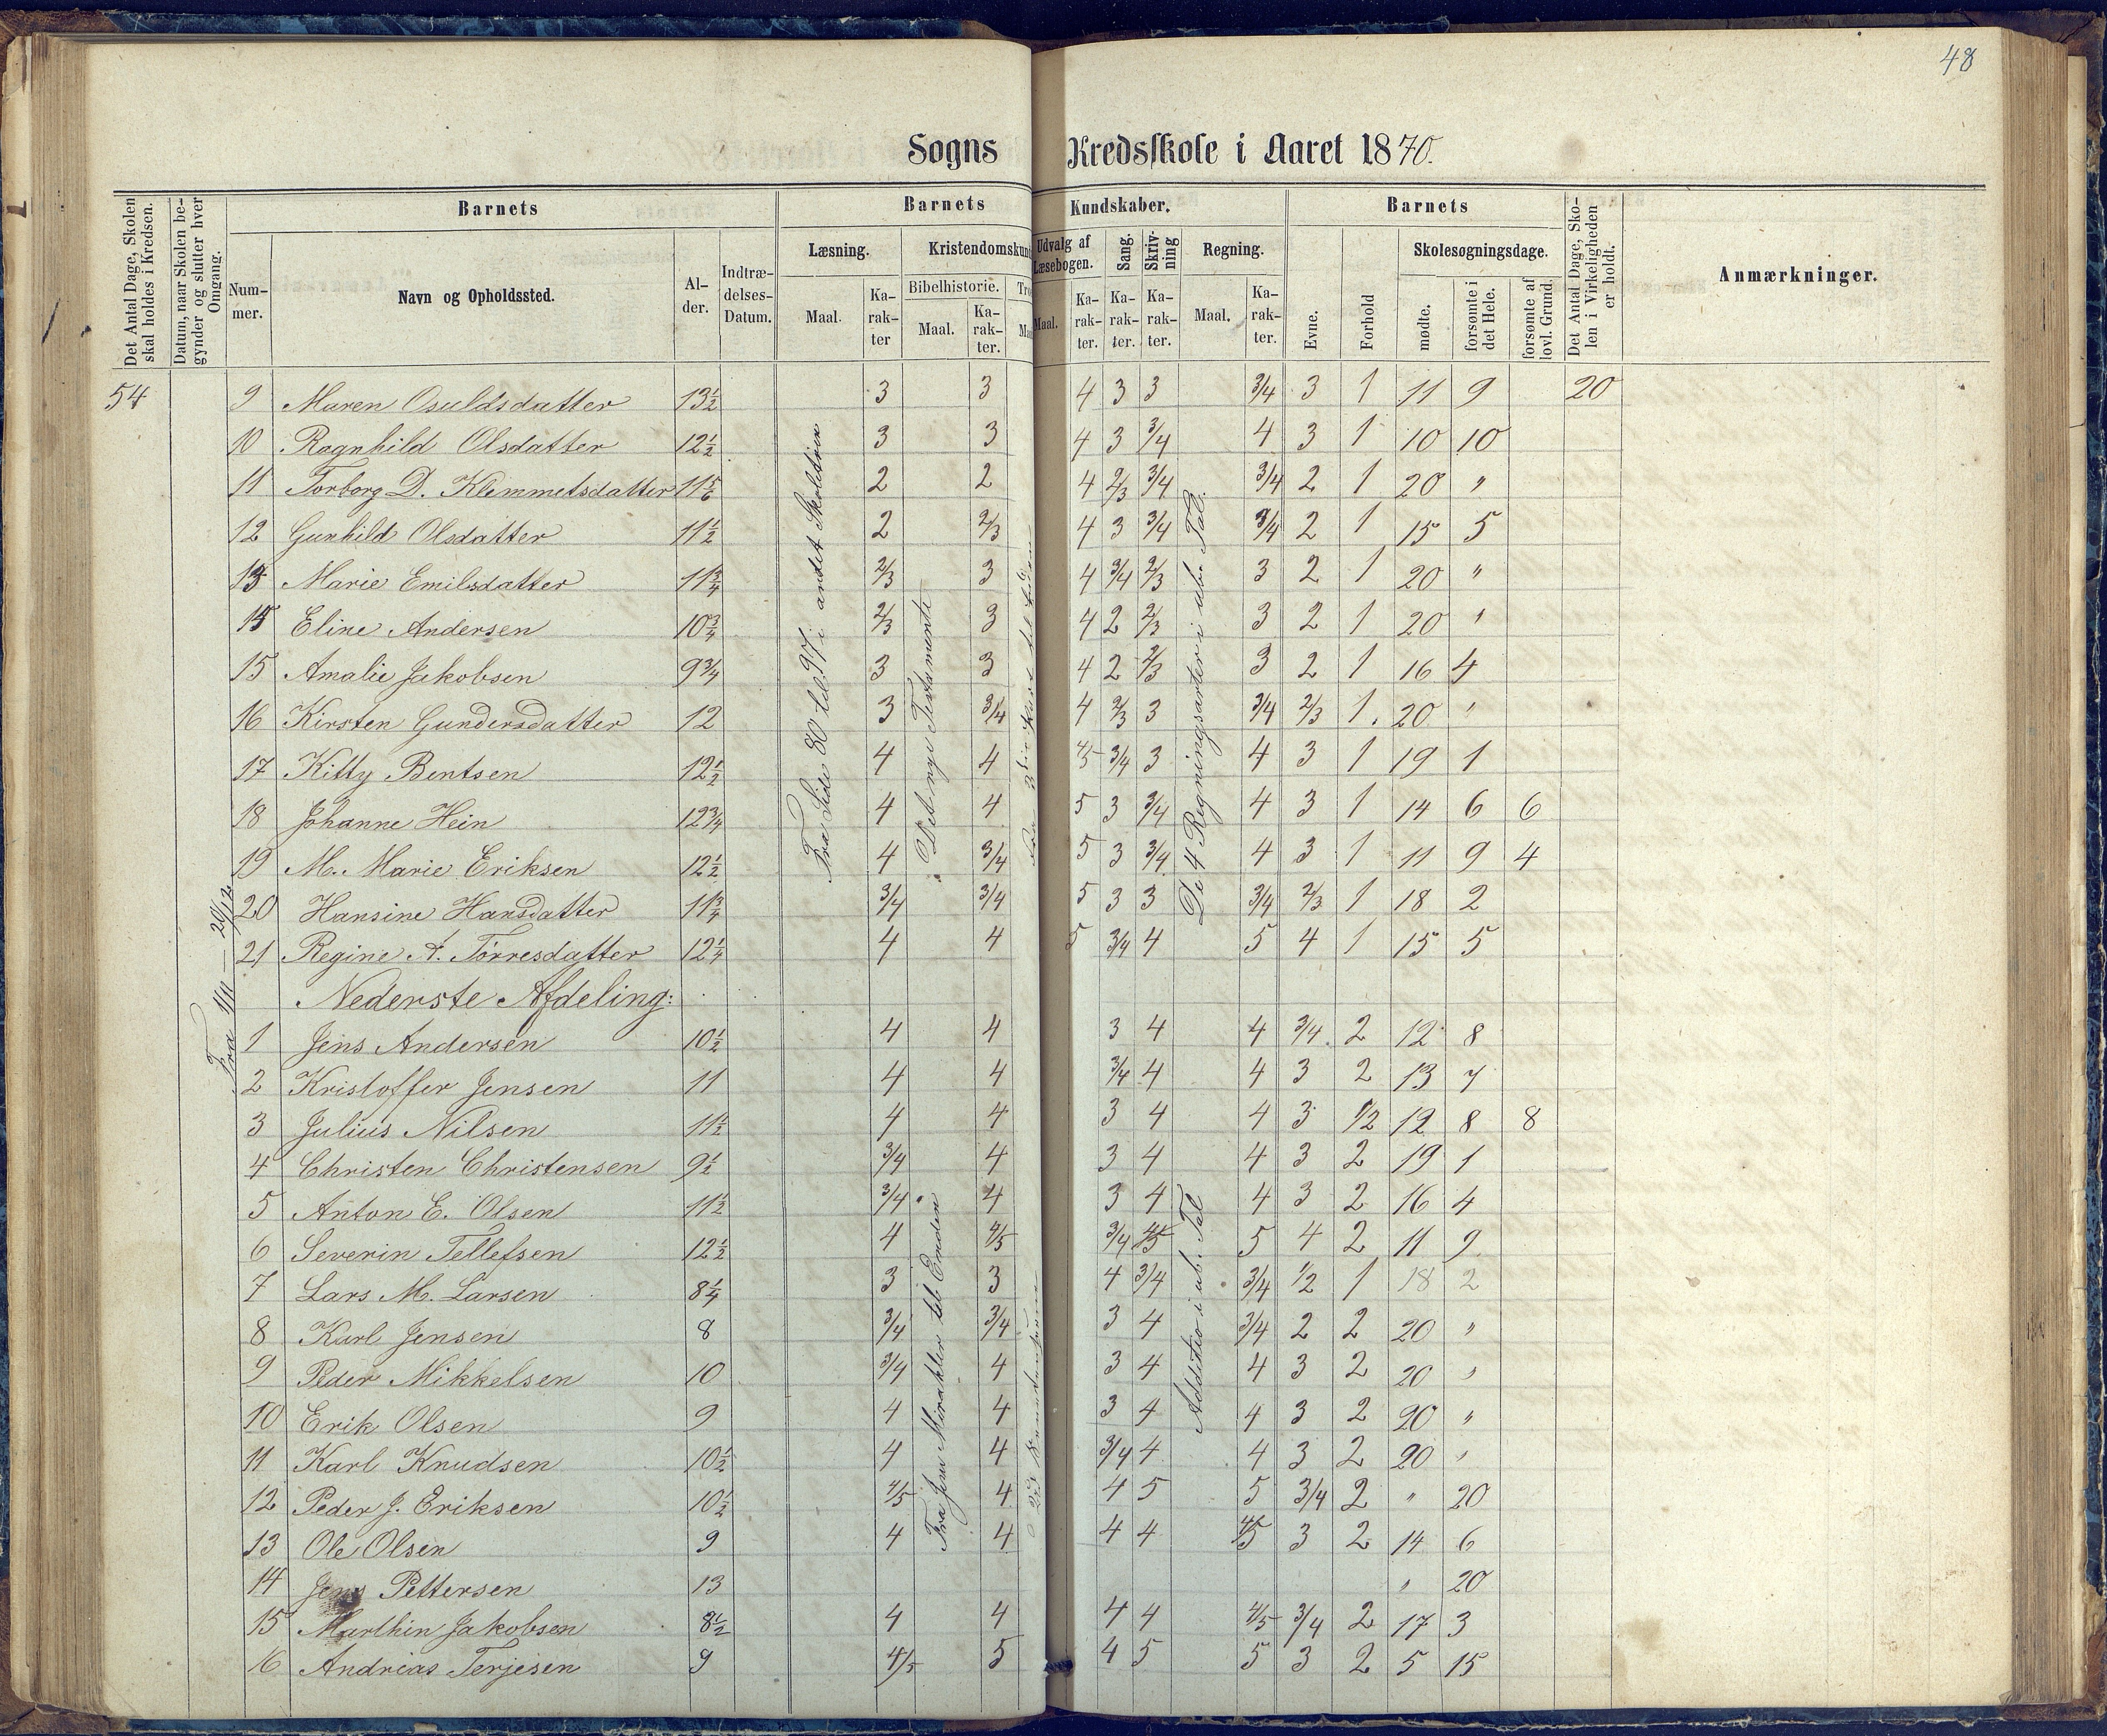 48
Sogns Kredsskole i Aaret 1870.
Det Antal Dage, Skolen skal holdes i Kredsen.
Datum, naar Skolen begynder og slutter hver Omgang.
Barnets
Nummer.
Navn og Opholdssted.
Alder.
Indtrædelses-Datum.
Barnets Kundskaber.
Læsning.
Maal.
Karakter
Kristendomskun
Bibelhistorie.
Maal.
Karakter.
Tro
Maa
Udvalg af Læsebogen.
Maal.
Karakter.
Sang.
Karakter.
Skrivning
Karakter.
Regning.
Maal.
Karakter.
Barnets
Evne.
Forhold
Skolesøgningsdage.
mødte.
forsømte i det Hele.
forsømte af lovl. Grund.
Det Antal Dage, Skolen i Virkeligheden er holdt.
Anmærkninger.
54 9 Maren Osuldsdatter 13½ 3 3 4 3 3 3/4 3 1 11 9 20
10 Ragnhild Olsdatter 12½ 3 3 4 3 3/4 4 3 1 10 10
11 Torborg D. Klemmetsdatter 11 5/6 2 2 4 2/3 3/4 3/4 2 1 20 "
12 Gunhild Olsdatter 11½ 2 2/3 4 3 3/4 3/4 2 1 15 5
13 Marie Emilsdatter 11¾ 2/3 3 4 3/4 2/3 3 2 1 20 "
14 Eline Andersen 10¾ 2/3 3 4 2 2/3 3 2 1 20 "
15 Amalie Jakobsen 9¾ 3 3 4 2 2/3 3 2 1 16 4
16 Kirsten Gundersdatter 12 3 3/4 4 2/3 3 3/4 2/3 1. 20 "
17 Kitty Bentsen 12½ 4 4 4/5 3/4 3 4 3 1 19 1
18 Johanne Hein 12¾ 4 4 5 3 3/4 4 3 1 14 6 6
19 M. Marie Eriksen 12½ 4 3/4 5 3 3/4 4 3 1 11 9 4
20 Hansine Hansdatter 11¾ 3/4 3/4 5 3 3 3/4 2/3 1 18 2
21 Regine A. Tørresdatter 12¼ 4 4 5 3/4 4 5 4 1 15 5
Fra Side 80 til 97 i andet Skoletrin
Det nye Testamente
De 4 Regningsarter i ube. Tal.
Fra 1/11 — 20/12
Nederste Afdeling:
1 Jens Andersen 10½ 4 4 3 4 4 3/4. 2 12 8
2 Kristoffer Jensen 11 4 4 3/4 4 4 3 2 13 7
3 Julius Nilsen 11½ 4 4 3 4 4 3 1/2 12 8 8
4 Christen Christensen 9½ 3/4 4 3 4 4 3 2 19 1
5 Anton E. Olsen 11½ 3/4 4 3 4 4 3 2 16 4
6 Severin Tellefsen 12½ 4 4/5 3/4 4/5 5 4 2 11 9
7 Lars M. Larsen 8¼ 3 3 4 3/4 3/4 1/2 1 18 2
8 Karl Jensen 8 3/4 3/4 3 4 3/4 2 2 20 "
9 Peder Mikkelsen 10 3/4 4 3 4 4 3 2 20 "
10 Erik Olsen 9 4 4 3 4 4 3 2 20 "
11 Karl Knudsen 10½ 4 4 3/4 4 4 3 2 20 "
12 Peder J. Eriksen 10½ 4/5 4 4 5 5 3/4 2 " 20
13 Ole Olsen 9 4 4 4 4 4/5 3 2 14 6
14 Jens Pettersen 13 " 20
15 Marthin Jakobsen 8½ 4 4 4 4 4/5 3/4 2 17 3
16 Andrias Terjesen 9 4/5 5 4 5 5 3 2 5 15
Fra Jesu Mirakler til Enden
Additio i ub. Tal